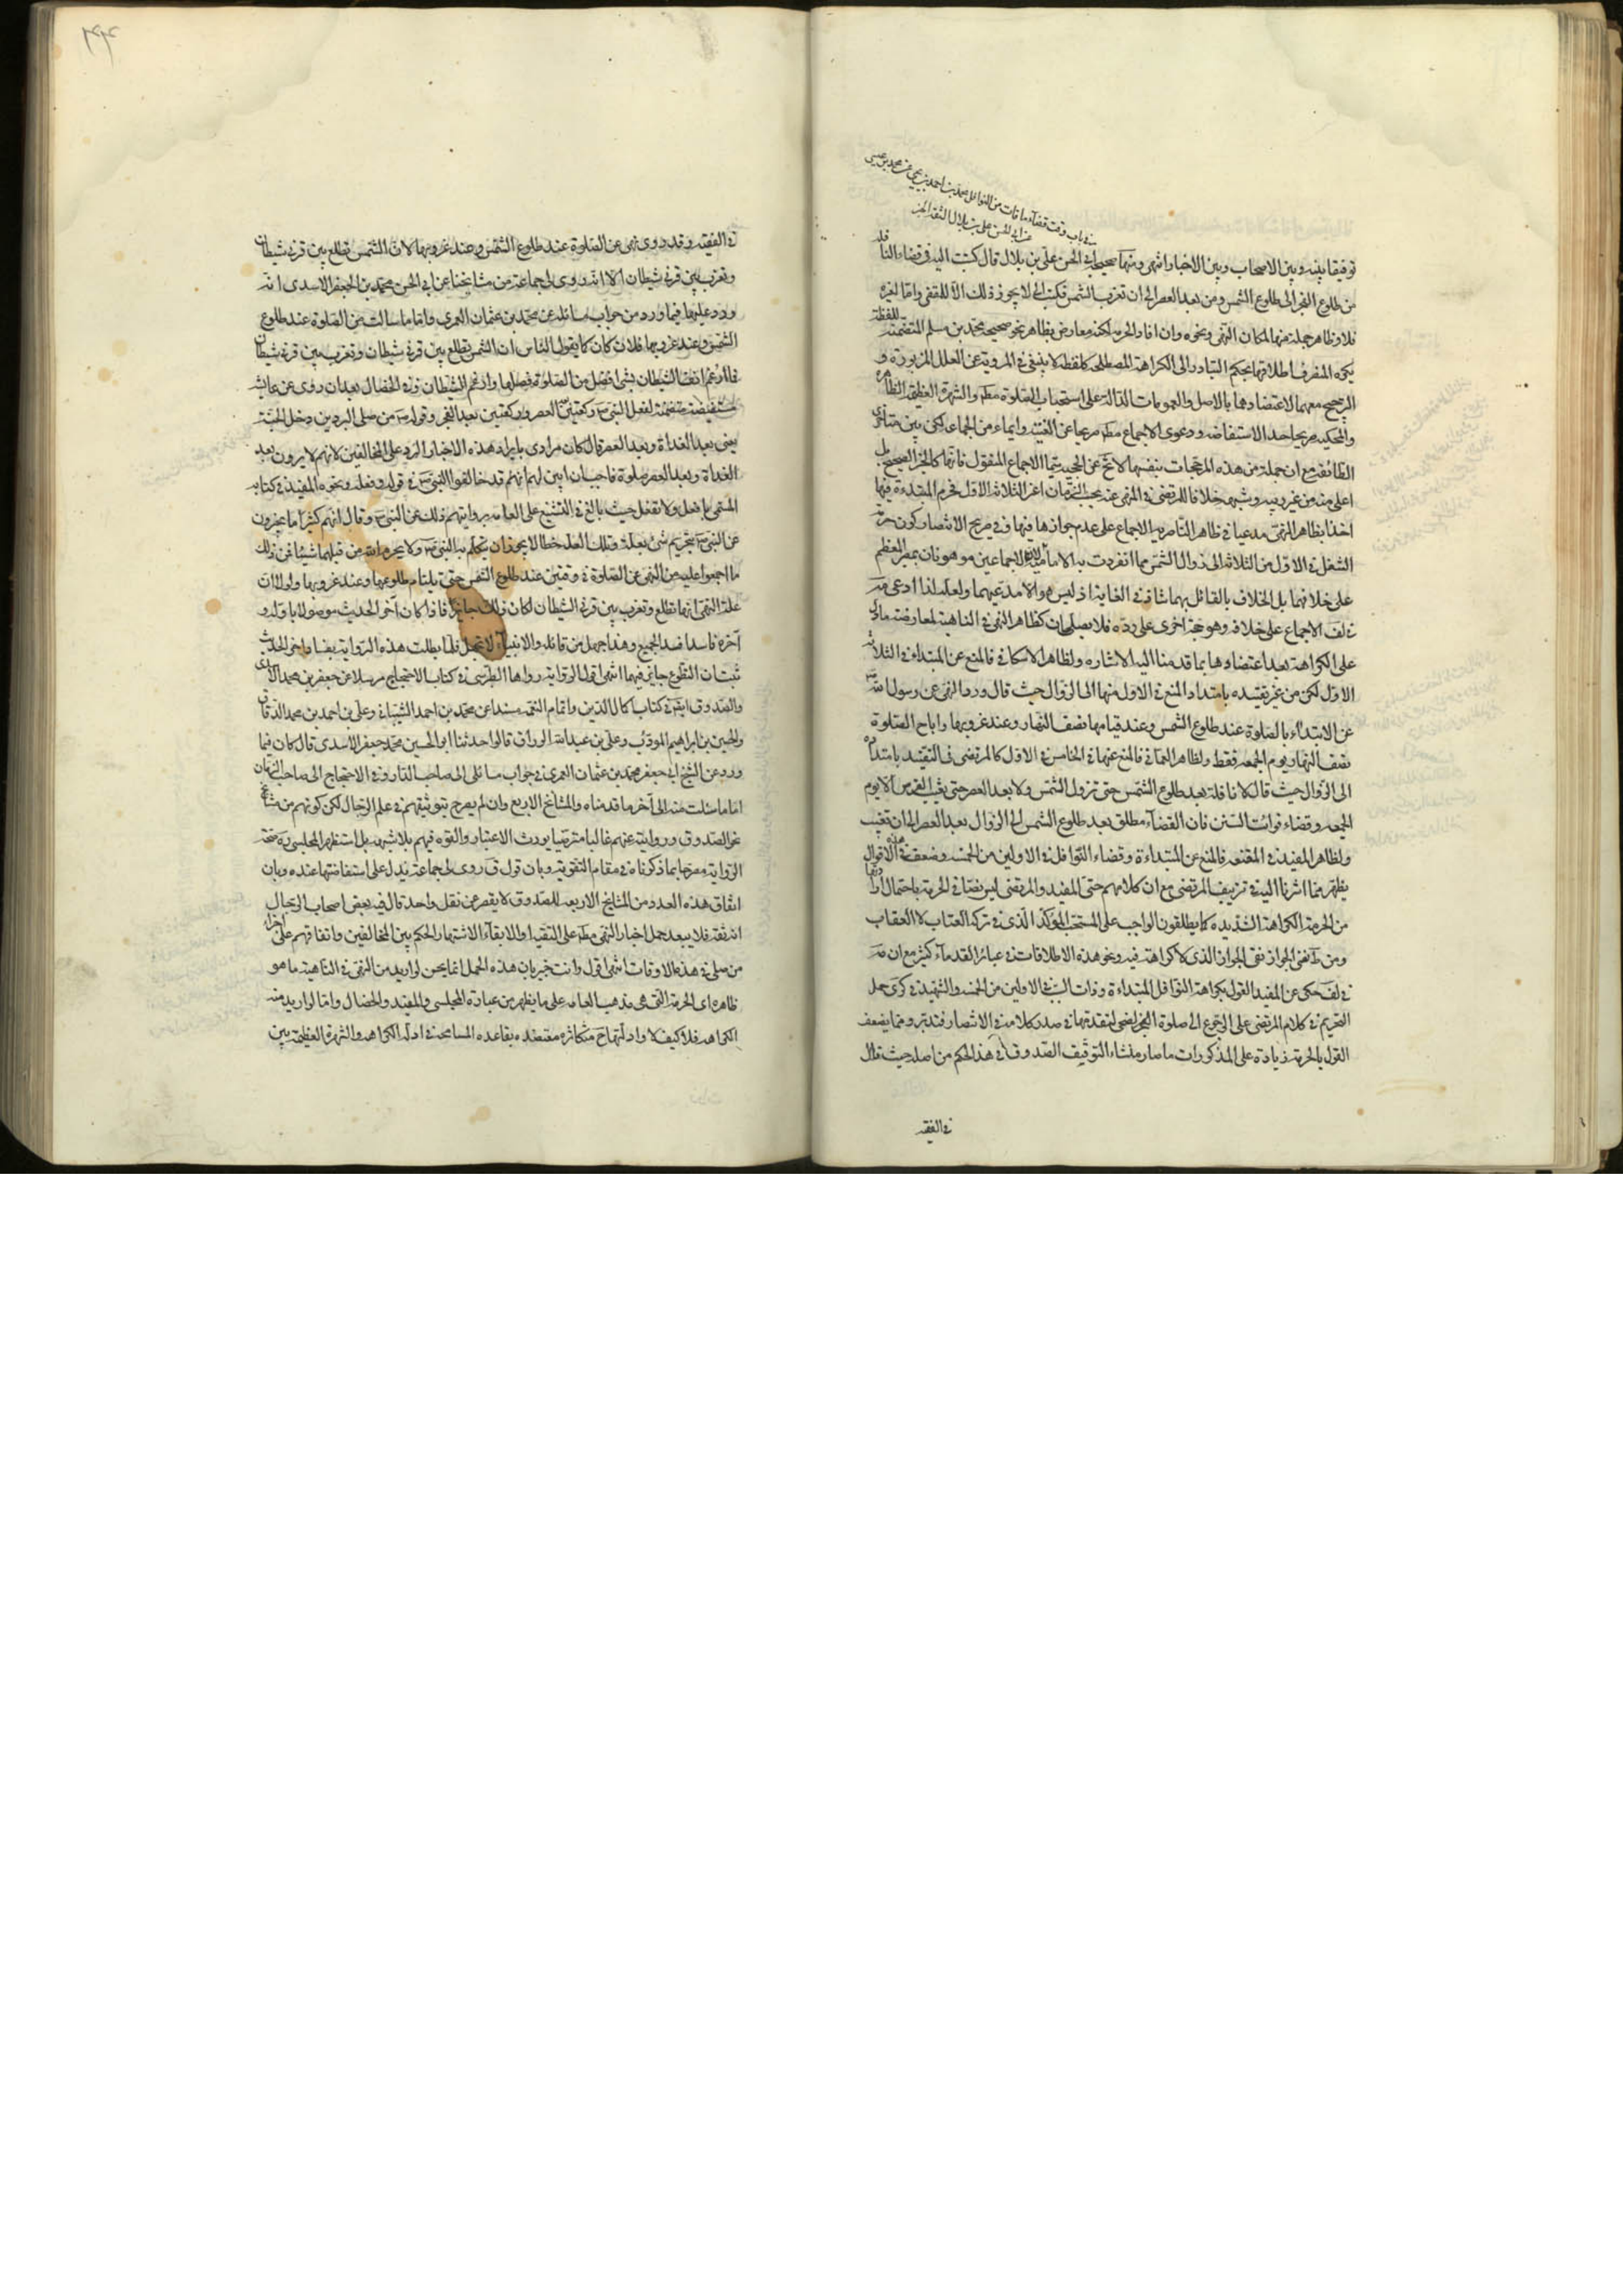 في باب وقت قضاء ما فات من النوافل محمد بن احمد بن يحيى عن محمد بن عيسى
عن ابي الحسن علي بن بلال الثقة الخ
توفيقا بينه وبين الاصحاب وبين الاخبار انتهى ومنها صحيحة ابي الحسن علي بن بلال قال كتبت اليه في قضاء النافلة
من طلوع الفجر الى طلوع الشمس ومن بعد العصر الى ان تغرب الشمس فكتب الي لا يجوز ذلك الا للمقتضي واما لغيره
فلا وظاهر جملة منها لمكان النهي ونحوه وان افاد الحرمة لكنه معارض بظاهر نحو صحيحة محمد بن مسلم المتضمنة للفظة
يكره المنصرف اطلاقها بحكم التبادر الى الكراهة المصطلحة كلفظة لا ينبغي في المروية عن العلل المزبورة و
الترجيح معهما لاعتضادهما بالاصل والعمومات الدالة على استحباب الصلوة مط والشهرة العظيمة الظاهرة
والمحكية صريحا حد الاستفاضة ودعوى الاجماع مط صريحا عن الغنية وايماء من الجماعة لكن بين متاخري
الطائفة مع ان جملة من هذه المرجحات بنفسها لا تخ عن الحجية سيما الاجماع المنقول فانها كالخبر الصحيح بل
اعلى منه من غير ريبة وشبهة خلافا للمرتضى في المنهي عنه بحسب الزمان اعني الثلاثة الاول فحرم المبتداءة فيها
اخذا بظاهر النهي مدعيا في ظاهر الناصرية الاجماع على عدم جوازها فيها وفي صريح الانتصار كون حرمة
التنفل في الاول من الثلاثة الى زوال الشمس مما انفردت به الامامية والاجماعين موهونان بمصير المعظم
على خلافهما بل الخلاف بالقائل بهما شاذ في الغاية اذ ليس هو الا مدعيهما ولعله لذا ادعى
في لف الاجماع على خلافه وهو حجة اخرى على رده فلا يصلحان كظاهر النهي في الناهية لمعارضة ما دل
على الكراهة بعد اعتضادها بما قدمنا اليه الاشارة ولظاهر الاسكافي فالمنع عن المبتداء في الثلاثة
الاول لكن من غير تقييده بامتداد المنع في الاول منها الى الزوال حيث قال ورد النهي عن رسول الله
عن الابتداء بالصلوة عند طلوع الشمس وعند قيامها نصف النهار وعند غروبها واباح الصلوة
نصف النهار يوم الجمعة فقط ولظاهر العماني فالمنع عنها في الخامس في الاول كالمرتضى في التقييد بامتداده
الى الزوال حيث قال لا نافلة بعد طلوع الشمس حتى تزول الشمس ولا بعد العصر حتى يغيب القرص الا يوم
الجمعة وقضاء فوائت السنن فان القضاء مطلق بعد طلوع الشمس الى الزوال بعد العصر الى ان تغيب
ولظاهر المفيد في المقنعة فالمنع عن المبتداءة وقضاء النوافل في الاولين من الخمسة وضعف هذه الاقوال
يظهر مما اشرنا اليه في تزييف المرتضى مع ان كلامهم حتى المفيد والمرتضى ليس نصا في الحرمة باحتمال ارادتها
من الحرمة الكراهة الشديدة كما يطلقون الواجب على المستحب المؤكد الذي في تركه العتاب لا العقاب
ومن نفي الجواز نفي الجواز الذي لا كراهة فيه ونحو هذه الاطلاقات في عبائر القدماء كثير مع ان
في لف حكى عن المفيد القول بكراهة النوافل المبتداءة وذات السبب في الاولين من الخمسة والشهيد في كرى حمل
التحريم في كلام المرتضى على الرجوع الى صلوة الضحى لتقدمها في صدر كلامه في الانتصار فتدبر ومما يضعف
القول بالحرمة زيادة على المذكورات ما صار منشاء التوقيف الصدوق في هذا الحكم من اصله حيث قال
في الفقيه
في الفقيه وقد روي نهي عن الصلوة عند طلوع الشمس وعند غروبها لان الشمس تطلع بين قرني شيطان
وتغرب بين قرني شيطان الا انه روى لي جماعة من مشايخنا عن ابي الحسن محمد بن جعفر الاسدي انه
ورد عليه فيما ورد من جواب مسائله عن محمد بن عثمان العمري واما ما سالت عن الصلوة عند طلوع
الشمس وعند غروبها فلان كان كما يقول الناس ان الشمس تطلع بين قرني شيطان وتغرب بين قرني شيطان
فما ارغم انف الشيطان بشيء افضل من الصلوة فصلها وارغم الشيطان وفي الخصال بعد ان روى عن عايشة
مستفيضة متضمنة لفعل النبي ص ركعتين العصر وركعتين بعد الفجر وقوله ص من صلى البردين دخل الجنة
يعني بعد الغداة وبعد العصر قال كان مرادي بايراد هذه الاخبار الرد على المخالفين لانهم لا يرون بعد
الغداة وبعد العصر صلوة فاحببت ان ابين لهم انهم قد خالفوا النبي ص في قوله وفعله ونحوه المفيد في كتابه
المسمى بافعل ولا تفعل حيث بالغ في التشنيع على العامة بروايتهم ذلك عن النبي ص وقال انهم كثيرا ما يخبرون
عن النبي ص بتحريم شيء بعلة وتلك العلة خطا لا يجوز ان يتكلم به النبي ص ولا يحرم الله من قبلها شيئا فمن ذلك
ما اجمعوا عليه من النهي عن الصلوة في وقتين عند طلوع الشمس حتى يلتام طلوعها وعند غروبها ولولا ان
علة النهي انها تطلع وتغرب بين قرني الشيطان لكان ذلك جايزا فاذا كان اخر الحديث موصولا باوله و
آخره فاسدا فسد الجميع وهذا جهل من قائله والانبياء لا تجهل فلما بطلت هذه الرواية بفساد اخر الحديث
ثبت ان التطوع جايز فيهما انتهى اقول الرواية رواها الطبرسي في كتاب الاحتجاج مرسلا عن جعفر بن محمد الاسدي
والصدوق ايضا في كتاب اكمال الدين واتمام النعمة مسندا عن محمد بن احمد الشيباني وعلي بن احمد بن محمد الدقاق
والحسين بن ابراهيم المودب وعلي بن عبد الله الوراق قالوا حدثنا ابو الحسين محمد جعفر الاسدي قال كان فيما
ورد عن الشيخ ابي جعفر محمد بن عثمان العمري في جواب مسائلي الى صاحب الدار وفي الاحتجاج الى صاحب الزمان
اما ما سئلت عنه الى آخر ما قدمناه والمشايخ الاربع وان لم يصرح بتوثيقهم في علم الرجال لكن كونهم من مشايخ
نحو الصدوق وروايته عنهم غالبا مترضيا يورث الاعتبار والقوة فيهم بلا شبهة بل استظهر المجلسي ره صحة
الرواية مصرحا بما ذكرناه في مقام التقوية وبان قول ق روى لي جماعة يدل على استفاضتها عنده وبان
اتفاق هذه العدد من المشايخ الاربعة للصدوق لا يقصر عن نقل واحد قال فيه بعض اصحاب الرجال
انه ثقة فلا يبعد حمل اخبار النهي مط على التقية او الاتقاء لاشتهار الحكم بين المخالفين واتفاقهم على اضرار
من صلى في هذه الاوقات انتهى اقول وانت خبير بان هذه الحمل انما يحسن لو اريد من النهي في الناهية ما هو
ظاهره اي الحرمة التي هي مذهب العامة على ما يظهر من عبارة المجلسي والمفيد والخصال واما لو اريد منه
الكراهة فلا كيف لا وادلتها ح متكاثرة معتضدة بقاعدة المسامحة في ادلة الكراهة والشهرة العظيمة بين